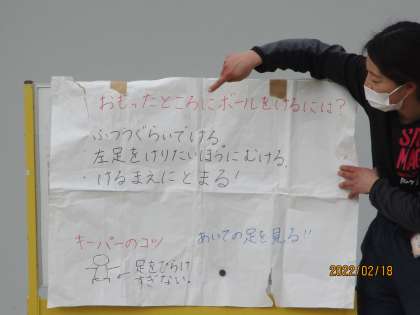 おもったところにボールをけるには?
・ふつうぐらいでける。
・左足をけりたいほうにむける。
・けるまえにとまる!
キーパーのコツ
あいての足を見る!!
足をひらけ
すぎない。
2022/02/18